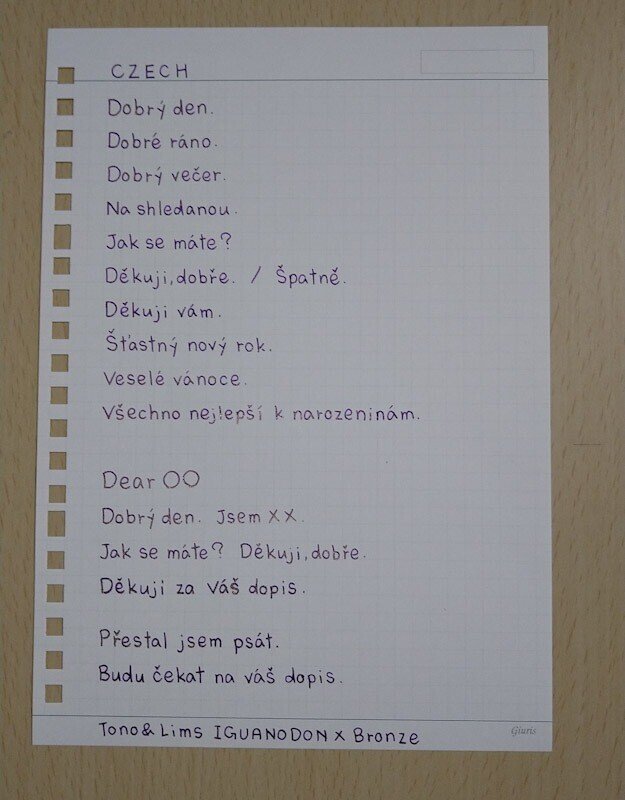 CZECH
Dobrý den.
Dobré ráno.
Dobrý večer.
Na shledanou.
Jak se máte?
Děkuji, dobře. / Špatně.
Děkuji vám.
Šťastný nový rok.
Veselé vánoce.
Všechno nejlepší k narozeninám.
Dear ○○
Dobrý den. Jsem XX.
Jak se máte? Děkuji, dobře.
Děkuji za Váš dopis.
Přestal jsem psát.
Budu čekat na váš dopis.
Tono & Lims IGUANODON x Bronze
Giuris